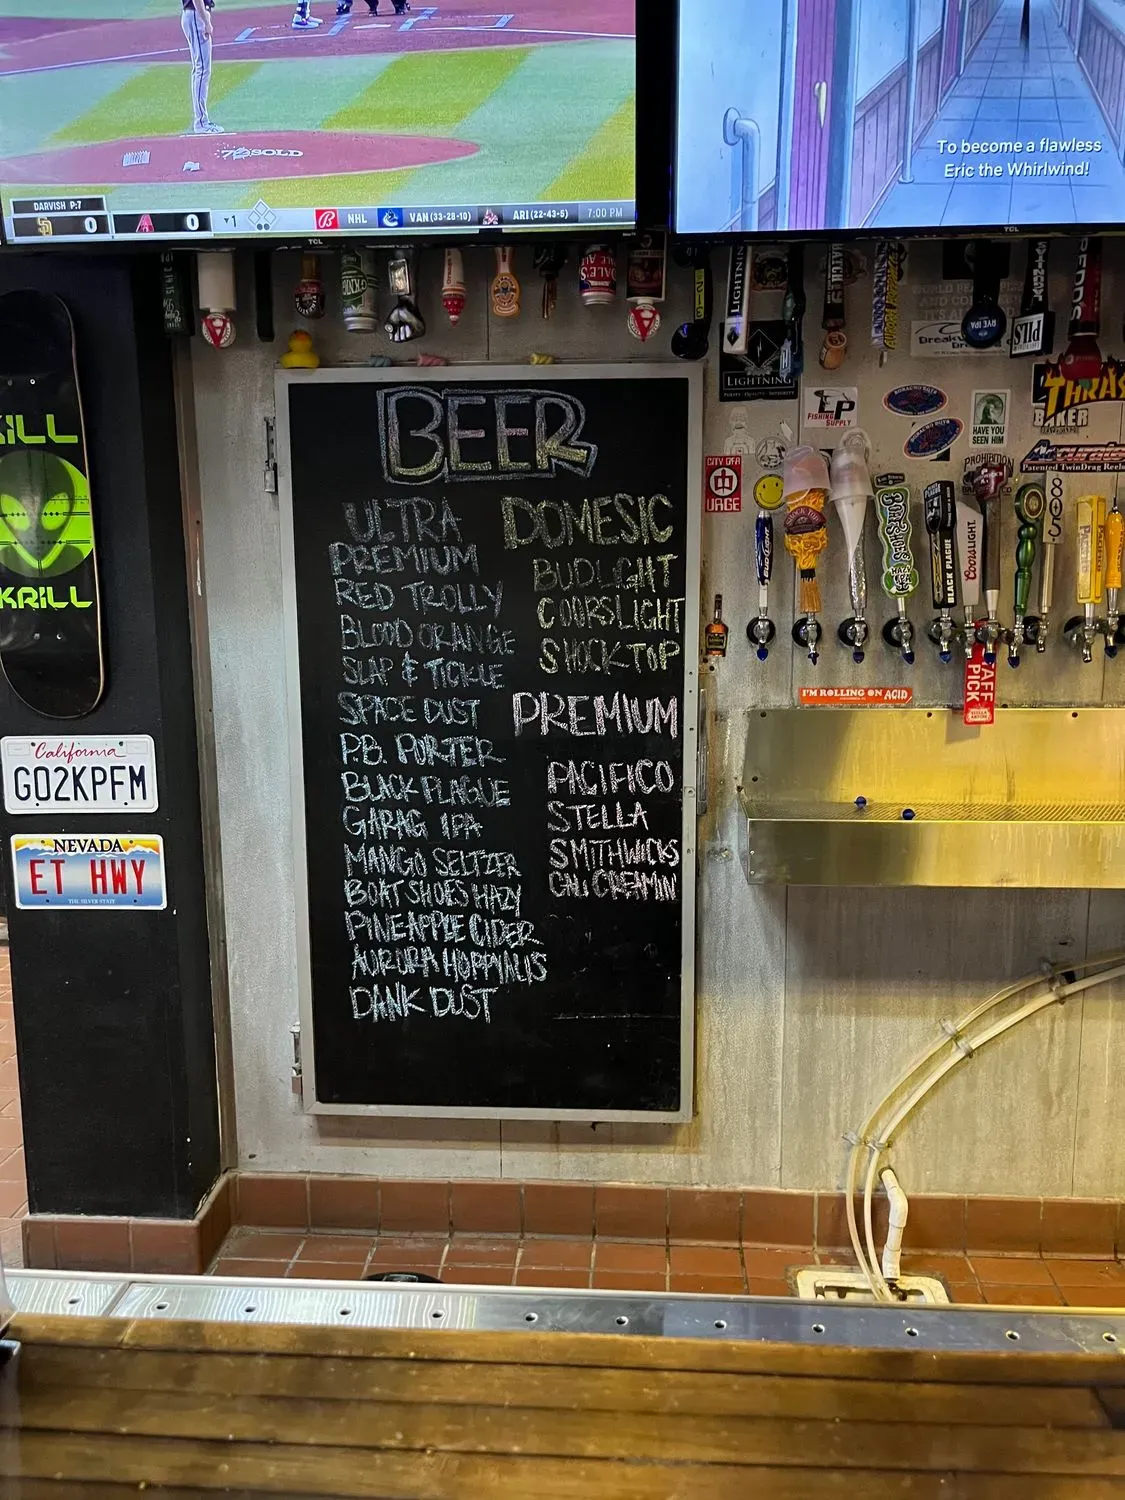 72SOLD
DARVISH P:7
SD 0 A 0 ▼1 B NHL VAN (33-28-10) ARI (22-43-5) 7:00 PM
To become a flawless
Eric the Whirlwind!
TCL
TCL
LIGHTNING
LIGHTNING
PILS
THRAS
BAKER
LP
FISHING
SUPPLY
HAVE YOU
SEEN HIM
PROHIBITION
Accurate
Patented TwinDrag Reels
CITY OF A
URGE
BLACK PLAGUE
Coors LIGHT
805
Pacifico
STAFF
PICK
I'M ROLLING ON ACID
KILL
KRILL
California
GO2KPFM
NEVADA
ET HWY
THE SILVER STATE
BEER
ULTRA
PREMIUM
RED TROLLY
BLOOD ORANGE
SLAP & TICKLE
SPACE DUST
P.B. PORTER
BLACK PLAGUE
GARAG IPA
MANGO SELTZER
BOAT SHOES HAZY
PINEAPPLE CIDER
AURORA HOPPYALIS
DANK DUST
DOMESIC
BUDLIGHT
COORSLIGHT
SHOCKTOP
PREMIUM
PACIFICO
STELLA
SMITHWICKS
CALI CREAMIN'